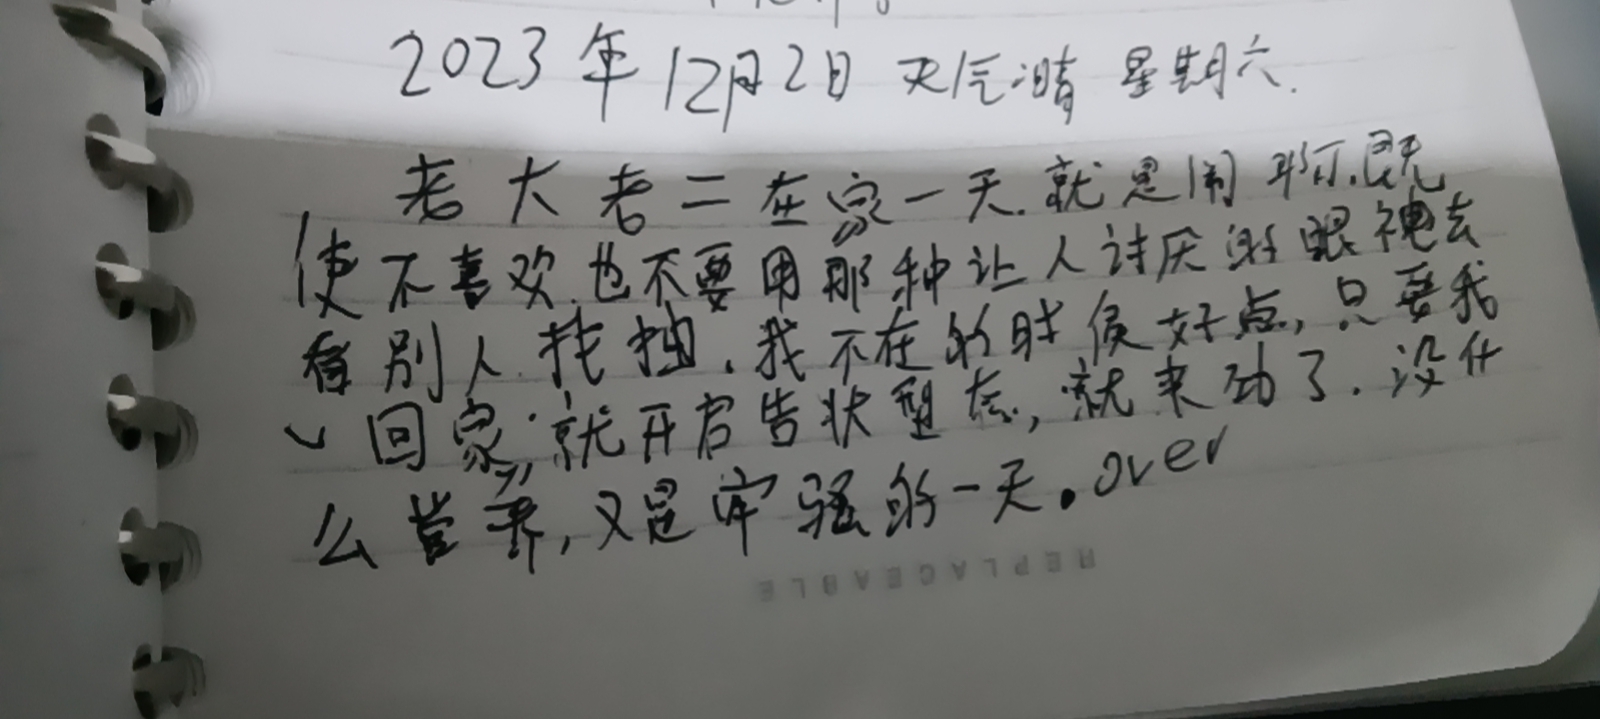 2023年12月2日 天气晴 星期六.
老大老二在家一天.就是闹啊.既
使不喜欢.也不要用那种让人讨厌的眼神去
看别人.找抽.我不在的时侯好点,只要我
一回家,就开启告状型态,就来劲了.没什
么营养,又是牢骚的一天。over
REPLACEABLE